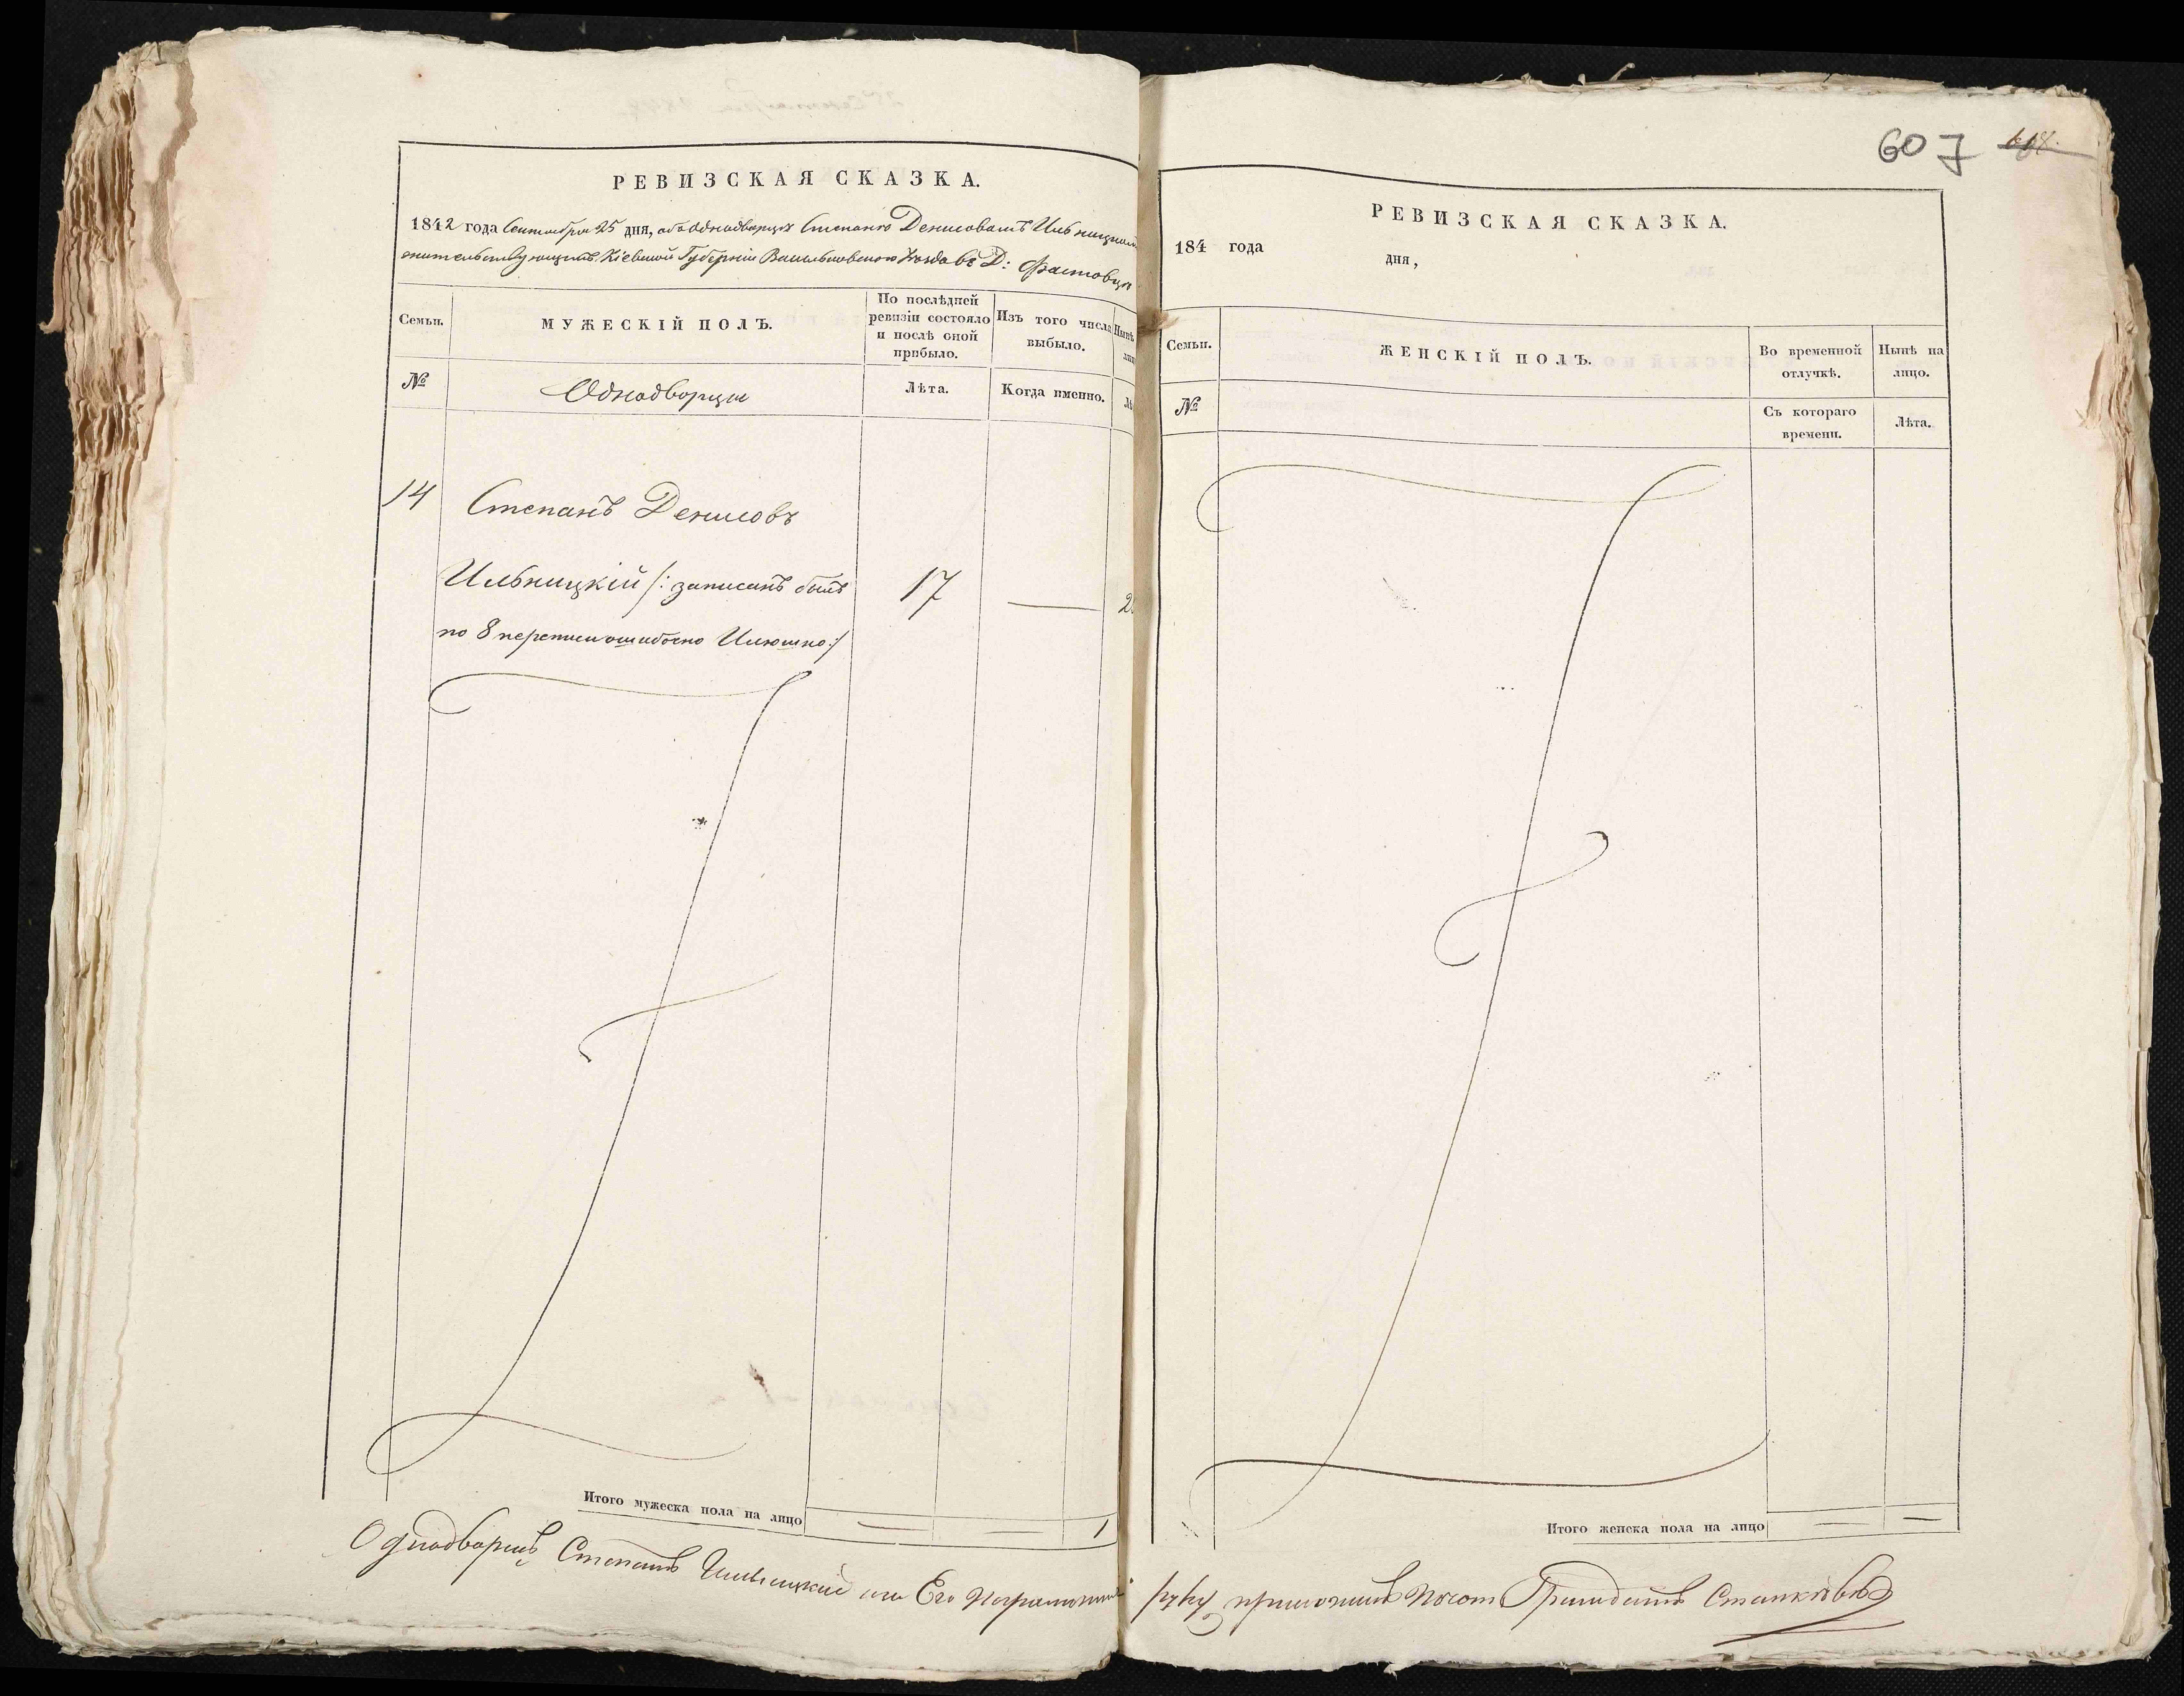 РЕВИЗСКАЯ СКАЗКА.
1842 года Сентября 25 дня, объ Однодворцѣ Степанѣ Денисовомъ Ильницком
жительствующемъ Кіевской Губерніи Васильковскаго Уѣзда въ Д: Фастовцѣ
Семьи.
МУЖЕСКІЙ ПОЛЪ.
По послѣдней ревизіи состояло и послѣ оной прибыло.
Изъ того числа выбыло.
№
Однодворцы
Лѣта.
Когда именно.
14
Степанъ Денисовъ
Ильницкій /: записанъ былъ
17
по 8 переписи ошибочно Илюшко:/
Итого мужеска пола на лицо
1
Однодворецъ Степанъ Ильницкій а за Его
607
РЕВИЗСКАЯ СКАЗКА.
184 года
дня,
Семьи.
ЖЕНСКІЙ ПОЛЪ.
Во временной отлучкѣ.
Нынѣ на лицо.
№
Съ котораго времени.
Лѣта.
Итого женска пола на лицо
руку приложилъ